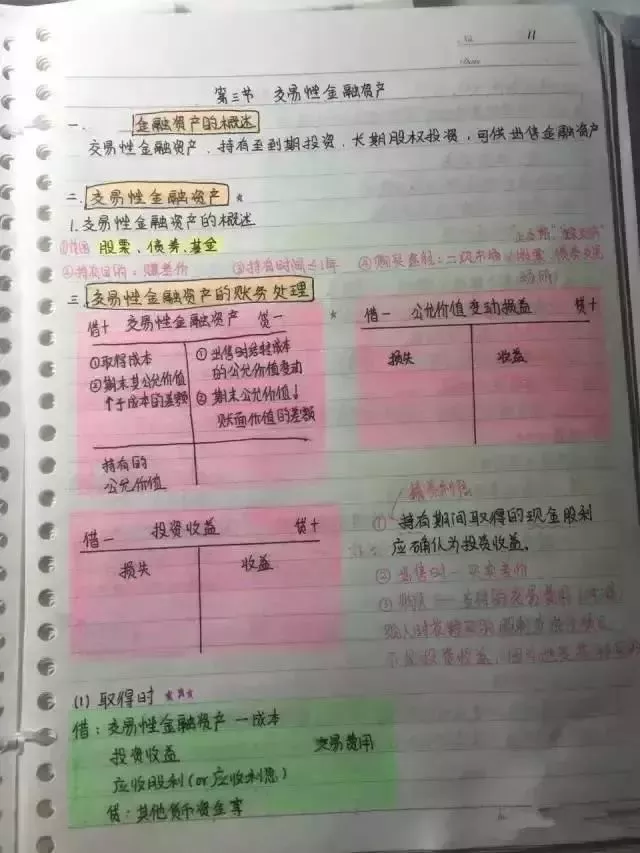 No. 11
Date
第三节 交易性金融资产
一. 金融资产的概述
交易性金融资产、持有至到期投资、长期股权投资、可供出售金融资产
二. 交易性金融资产 ★
1.交易性金融资产的概述
①范围 股票、债券、基金
②持有目的：赚差价 ③持有时间≤1年 ④购买途径：二级市场
三. 交易性金融资产的账务处理
借+ 交易性金融资产 贷一
①取得成本
②期末其公允价值
↑于成本的差额
①出售时结转成本
的公允价值变动
②期末公允价值↓
账面价值的差额
持有的
公允价值
★ 借一 公允价值变动损益 贷+
损失 收益
借一 投资收益 贷+
损失 收益
①持有期间取得的现金股利
应确认为投资收益。
②出售时一买卖差价
(1) 取得时 ★★★
借：交易性金融资产一成本
投资收益 交易费用
应收股利(or应收利息)
贷：其他货币资金等